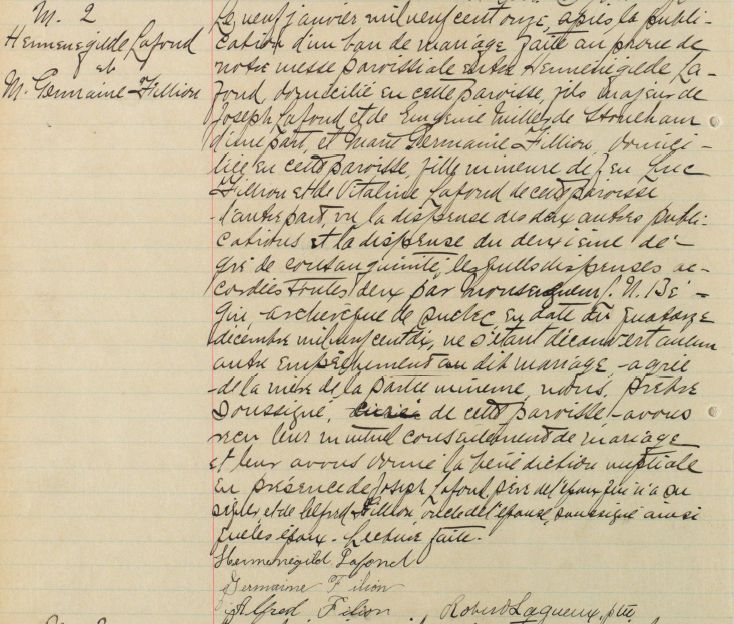 M. 2
Hermenegilde Lafond
et
M. Germaine Fillion
Le neuf janvier mil neuf cent onze, après la publi-
cation d'un ban de mariage faite au prône de
notre messe paroissiale entre Hermenégilde La-
fond, domicilié en cette paroisse, fils majeur de
Joseph Lafond et de Eugenie Miller de Stoneham
d'une part, et Marie Germaine Fillion, domici-
liée en cette paroisse, fille mineure de feu Luc
Fillion et de Vitaline Lafond de cette paroisse
d'autre part, vu la dispense des deux autres publi-
cations et la dispense du deuxième de-
gré de consanguinité, lesquelles dispenses ac-
cordées toutes deux par Monseigneur L. N. Bé-
gin archevêque de Québec, en date du quatorze
décembre mil neuf cent dix, ne s'étant découvert aucun
autre empêchement au dit mariage, agréé
de la mère de la partie mineure, nous, prêtre
soussigné, curé de cette paroisse, avons
reçu leur mutuel consentement de mariage
et leur avons donné la bénédiction nuptiale
en présence de Joseph Lafond, père de l'époux qui n'a su
signer et de Alfred Fillion, oncle de l'épouse, soussigné ainsi
que les époux. Lecture faite.
Hermenégild Lafond
Germaine Filion
Alfred Filion Robert Lagueux, ptre